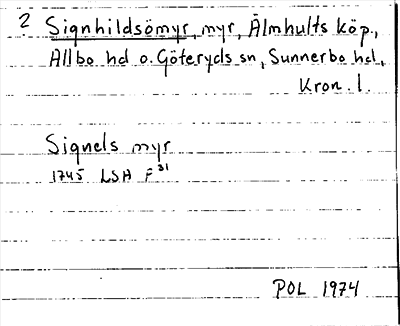 ? Signhildsömyr, myr, Älmhults köp.,
Allbo hd o. Göteryds sn, Sunnerbo hd,
Kron. l.
Signels myr
1745 LSA F 31
POL 1974